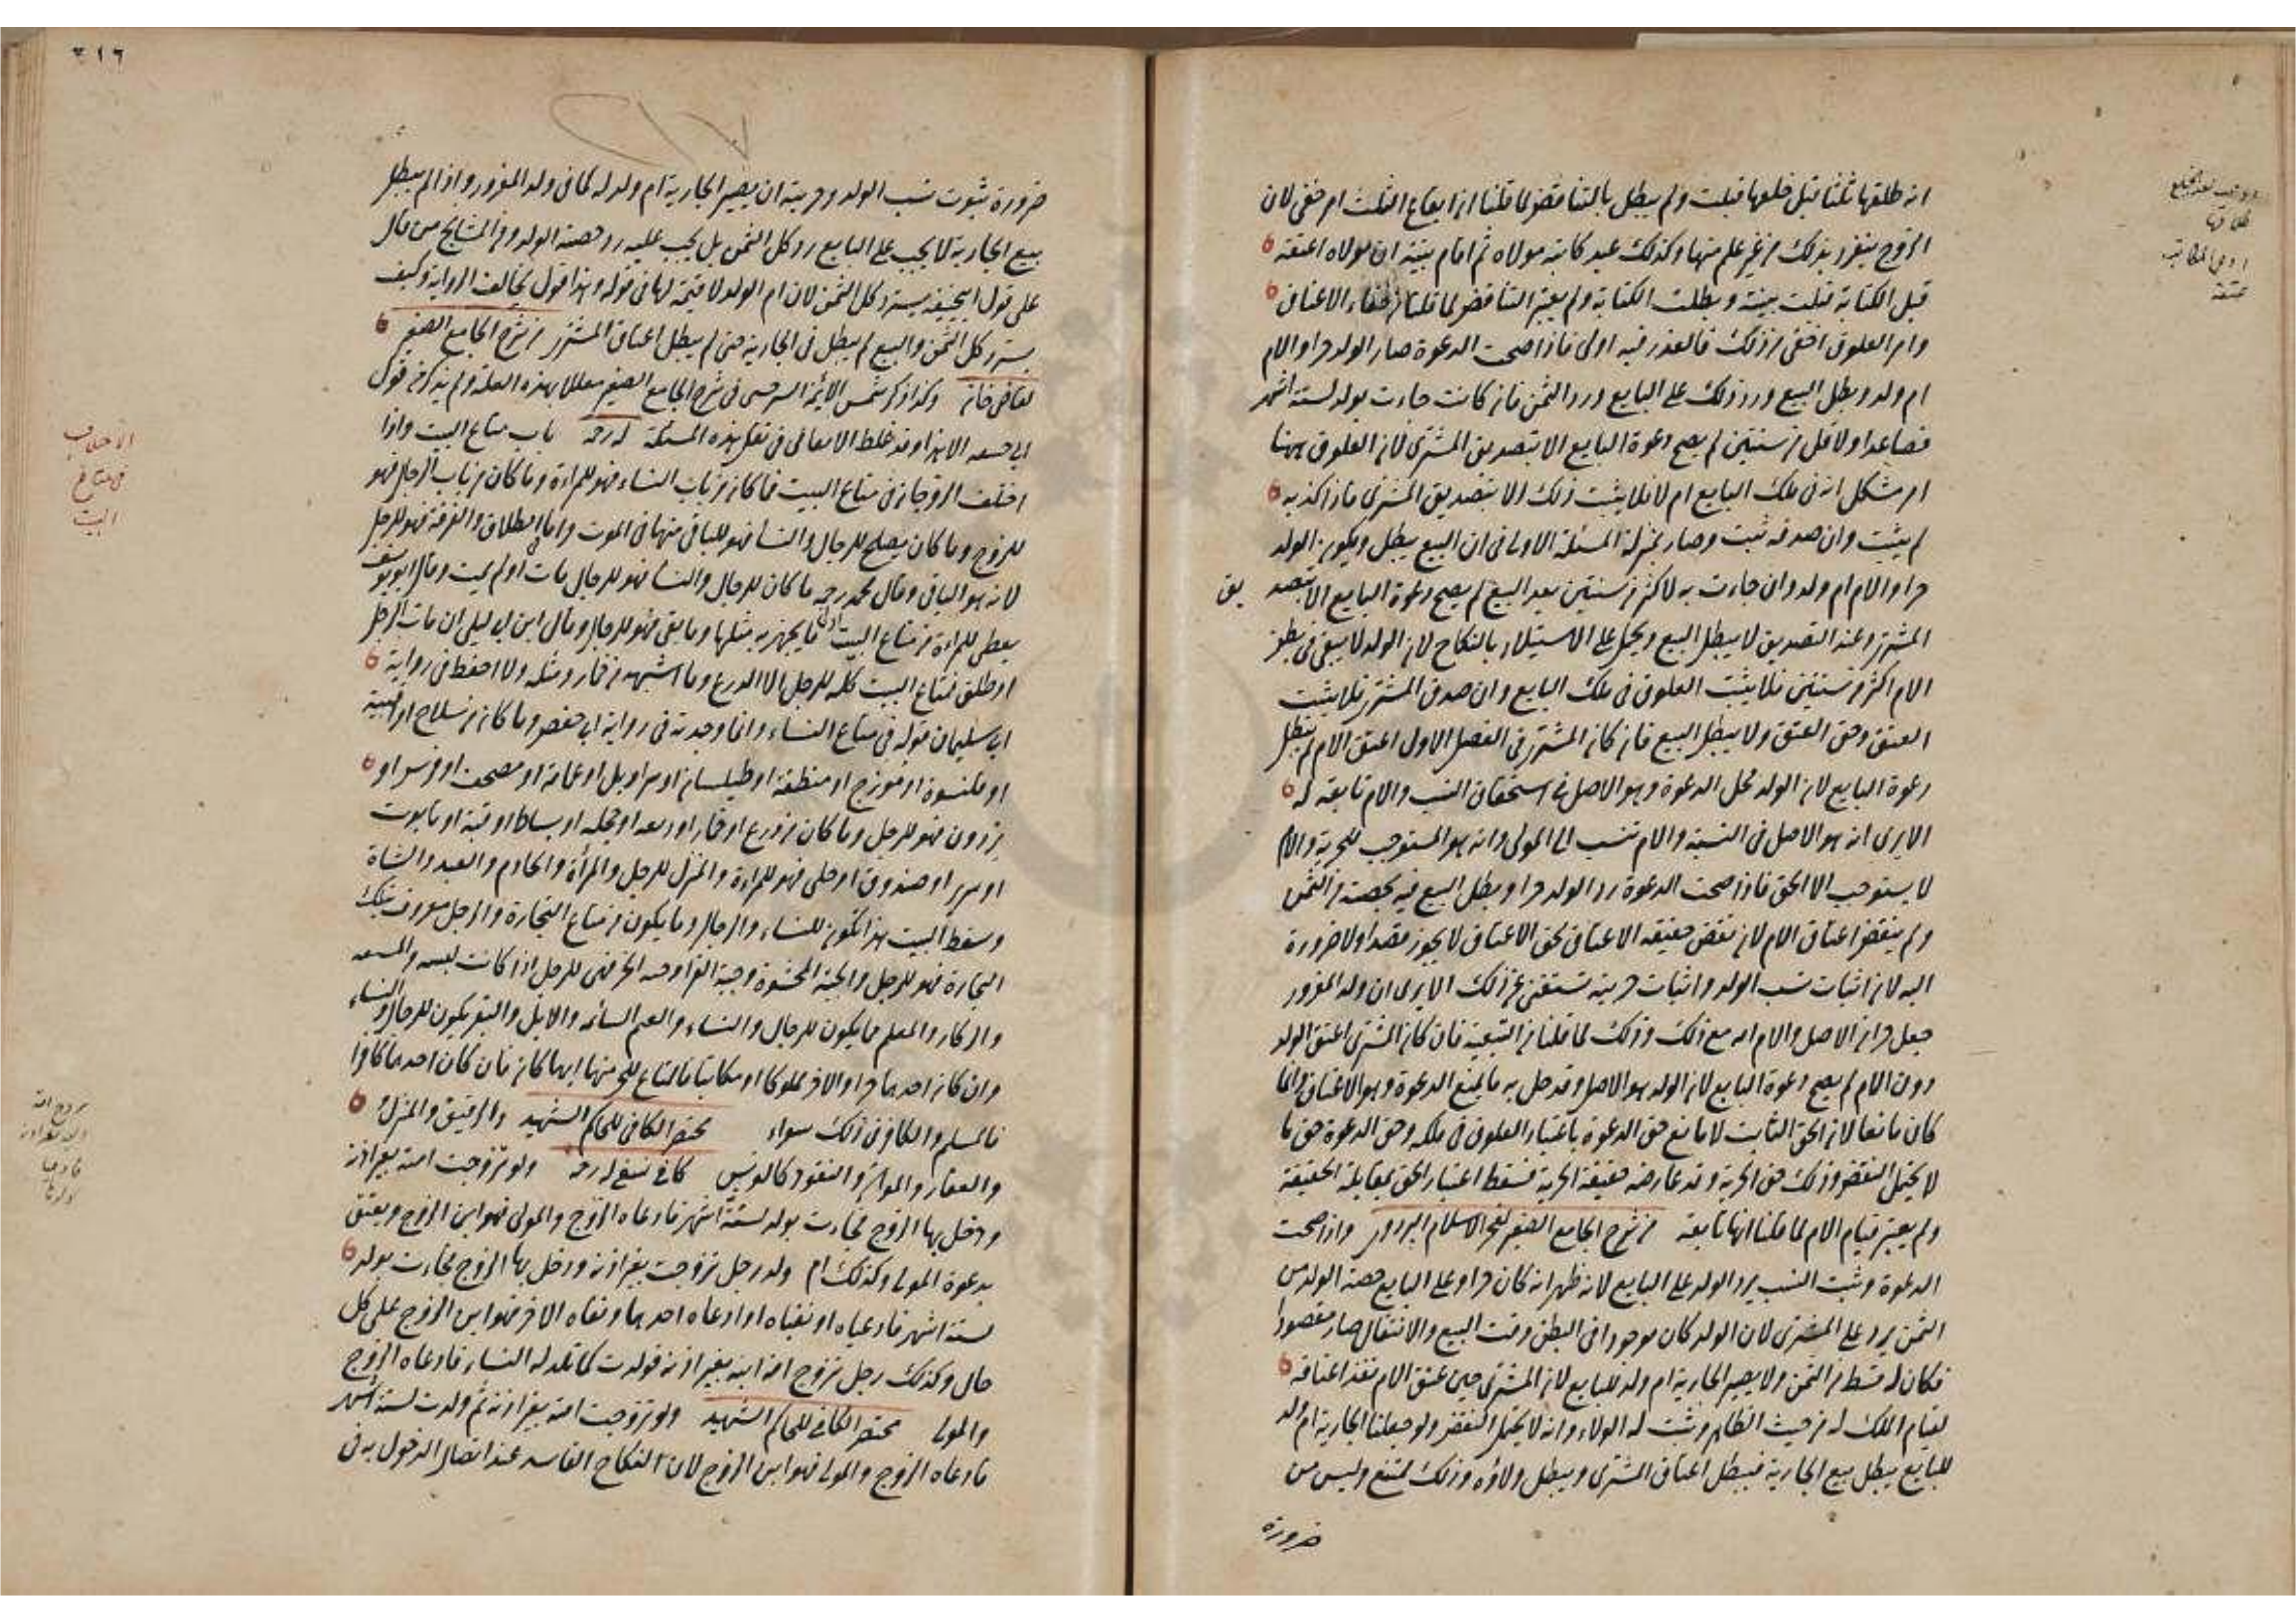 انه طلقها ثلثا قبل خلعها قبلت ولم يبطل بالتناقض لما قلنا ان ايقاع الثلث امر خفى لان
الزوج ينفرد بذلك من غير علم منها وكذلك عبد كاتبه مولاه ثم اقام بينة ان مولاه اعتقه
قبل الكتابة قبلت بينته وبطلت الكتابة ولم يعتبر التناقض لما قلنا من خفاء الاعتاق
وامر العلوق اخفى من ذلك فالعذر فيه اولى فاذا صحت الدعوة صار الولد حرا والام
ام ولد وبطل البيع ورد ذلك على البايع ورد الثمن فان كانت جاءت بولد لستة اشهر
فصاعدا ولاقل من سنتين لم يصح دعوة البايع الا بتصديق المشترى لان العلوق ههنا
امر مشكل انه فى ملك البايع ام لا فلا يثبت ذلك الا بتصديق المشترى فاذا كذبه
لم يثبت وان صدقه ثبت وصار بمنزلة المسئلة الاولى فى ان البيع يبطل ويكون الولد
حرا والام ام ولد وان جاءت به لاكثر من سنتين بعد البيع لم يصح دعوة البايع الا بتصد يق
المشترى وعند التصديق لا يبطل البيع ويحمل على الاستيلاد بالنكاح لان الولد لا يبقى فى بطن
الام اكثر من سنتين فلا يثبت العلوق فى ملك البايع وان صدق المشترى فلا يثبت
العتق وحق العتق ولا يبطل البيع فان كان المشترى فى الفصل الاول اعتق الام لم يبطل
دعوة البايع لان الولد محل الدعوة وهو الاصل فى استحقاق النسب والام تابعة له
الا يرى انه هو الاصل فى النسبة والام تنسب الى المولى وانه هو المستوجب للحرية والام
لا يستوجب الا الحق فاذا صحت الدعوة رد الولد حرا وبطل البيع فيه بحصته من الثمن
ولم ينقض اعتاق الام لان نقض حقيقة الاعتاق بحق الاعتاق لا يجوز مقصدا ولا ضرورة
اليه لان اثبات نسب الولد واثبات حريته تستغنى عن ذلك الا يرى ان ولد المغرور
جعل حرا فى الاصل والام امه مع ذلك وذلك لما قلنا من التبعية فان كان المشترى اعتق الولد
دون الام لم يصح دعوة البايع لان الولد هو الاصل وقد حل به ما يمنع الدعوة وهو الاعتاق وانما
كان مانعا لان الحق الثابت لا مانع حق الدعوة باعتبار العلوق فى ملكه وحق الدعوة حق ما
لا يحتمل النقض وذلك حق الحرية وقد عارضه حقيقة الحرية فسقط اعتبار الحق بمقابلة الحقيقة
ولم يعتبر قيام الام لما قلنا انها تابعة من شرح الجامع الصغير لفخر الاسلام البزدوى واذا صحت
الدعوة وثبت النسب يرد الولد على البايع لانه ظهر انه كان حرا وعلى البايع حصة الولد من
الثمن يرد على المشترى لان الولد كان موجودا فى البطن وقت البيع والانتقال صار مقصودا
فكان له قسط من الثمن ولا يصير الجارية ام ولد للبايع لان المشترى حين عتق الام نفذ اعتاقه
لقيام الملك له من حيث الظاهر وثبت له الولاء وانه لا يحتمل النقض ولو جعلنا الجارية ام ولد
للبايع يبطل بيع الجارية فيبطل اعتاق المشترى ويبطل ولاؤه وذلك ممتنع وليس من
ضرورة
٢١٦
ضرورة ثبوت نسب الولد وحريته ان يصير الجارية ام ولد له كما فى ولد المغرور واذا لم يبطل
بيع الجارية لا يجب على البايع رد كل الثمن بل يجب عليه رد حصة الولد ومن المشايخ من قال
على قول ابيحنيفة يسترد كل الثمن لان ام الولد لا قيمة لها فى قوله وهذا قول يخالف الرواية وكيف
يسترد كل الثمن والبيع لم يبطل فى الجارية حتى لم يبطل اعتاق المشترى من شرح الجامع الصغير
لقاضى خان وكذا ذكر شمس الائمة السرخسى فى شرح الجامع الصغير معللا بهذه العلة ولم يذكر فى قول
ابى حنيفه الا هذا وقد غلط الاتقانى فى نقل هذه المسئلة له رحمه باب متاع البيت واذا
اختلف الزوجان فى متاع البيت فما كان من ثياب النساء فهو للمراة وما كان من ثياب الرجال فهو
للزوج وما كان يصلح للرجال والنسا فهو للباقى منهما فى الموت واما الطلاق والفرقة فهو للرجل
لانه هو الباقى وقال محمد رحمه ما كان للرجال والنسا فهو للرجال مات او لم يمت وقال ابو يوسف
يعطى للمراة من متاع البيت ما يجهز به مثلها وما بقى فهو للرجل وقال ابن ابى ليلى ان مات الرجل
او طلق فمتاع البيت كله للرجل الا الدرع وما اشبهه من خمار ومثله ولا احفظ فى رواية
ابى سليمان قوله فى متاع النساء وانما وجدته فى رواية ابى حفص وما كان من سلاح او اقبية
او قلنسوة او موزج او منطقة او طيلسان او سراويل او عمامة او مصحف او فرس او
برذون فهو للرجل وما كان من درع او خمار او او محلة او بساط او قبة او تابوت
او سرير او صندوق او حلى فهو للمراة والمنزل للرجل والمرأة والخادم والعبد والشاة
وسقط البيت هذا يكون للنساء والرجال وما يكون من متاع التجارة والرجل معروف بتلك
التجارة فهو للرجل والجبة المحشوة وجبة الفرا وجبة الخز فهى للرجل اذا كانت
والنساء والغنم السائمة والابل والبقر يكون للرجال والنساء
وان كان احدهما حرا والاخر مملوكا او مكاتبا فالمتاع للحر منهما ايهما كان فان كان احدهما كافرا
فالمسلم والكافر فى ذلك سواء مختصر الكافى للحاكم الشهيد والرقيق والمنزل
والعقار والمواشى والنقود كالفرس كافى نسفى له رحمه ولو تزوجت امة بغير اذن
ودخل بها الزوج فجاءت بولد لستة اشهر فادعاه الزوج والمولى فهو ابن الزوج ويعتق
بدعوة المولى وكذلك ام ولد رجل تزوجت بغير اذنه ودخل بها الزوج فجاءت بولد
لستة اشهر فادعياه او نفياه او ادعاه احدهما ونفاه الاخر فهو ابن الزوج على كل
حال وكذلك رجل تزوج امة ابنه بغير اذنه فولدت كما تلد له النساء فادعاه الزوج
والمولى مختصر الكافى للحاكم الشهيد ولو تزوجت امة بغير اذنه ثم ولدت لستة اشهر
فادعاه الزوج والمولى فهو ابن الزوج لان النكاح الفاسد عند اتصال الدخول به فى
الاختلاف
فى متاع
البيت